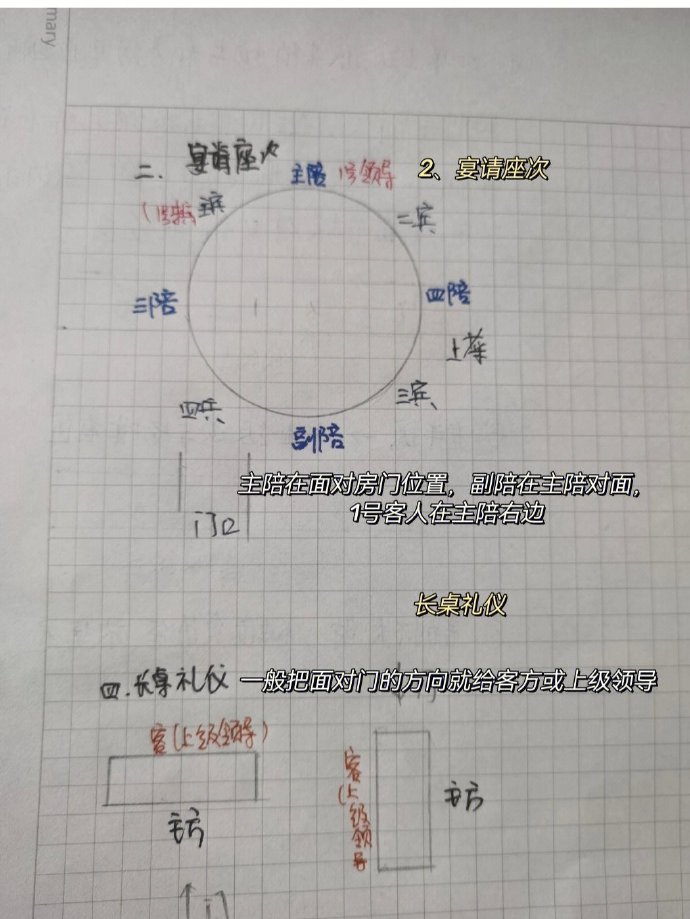 mary
二、宴请座次
2、宴请座次
主陪 1号领导
主宾
二宾
三陪
四陪
上菜
三宾
四宾
副陪
门口
主陪在面对房门位置，副陪在主陪对面，
1号客人在主陪右边
长桌礼仪
四.长桌礼仪
一般把面对门的方向就给客方或上级领导
客(上级领导)
主方
客(上级领导
主方
门